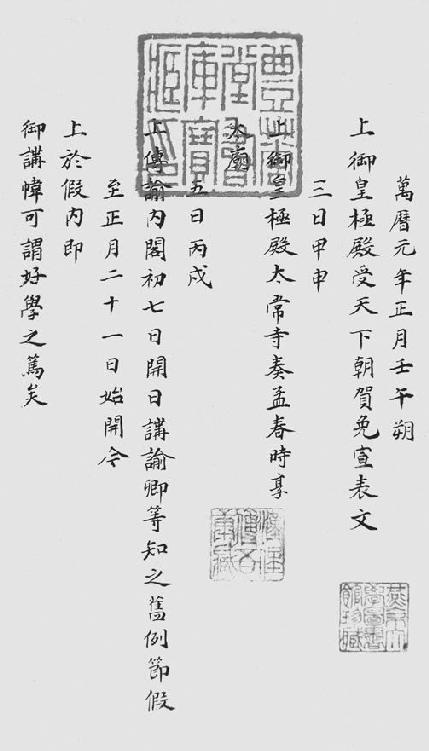 萬曆元年正月壬午朔
上御皇極殿受天下朝賀免宣表文
三日甲申
上御皇極殿太常寺奏孟春時享
太廟
五日丙戌
上傳諭內閣初七日開日講諭卿等知之舊例節假
至正月二十一日始開今
上於假內即
御講幃可謂好學之篤矣